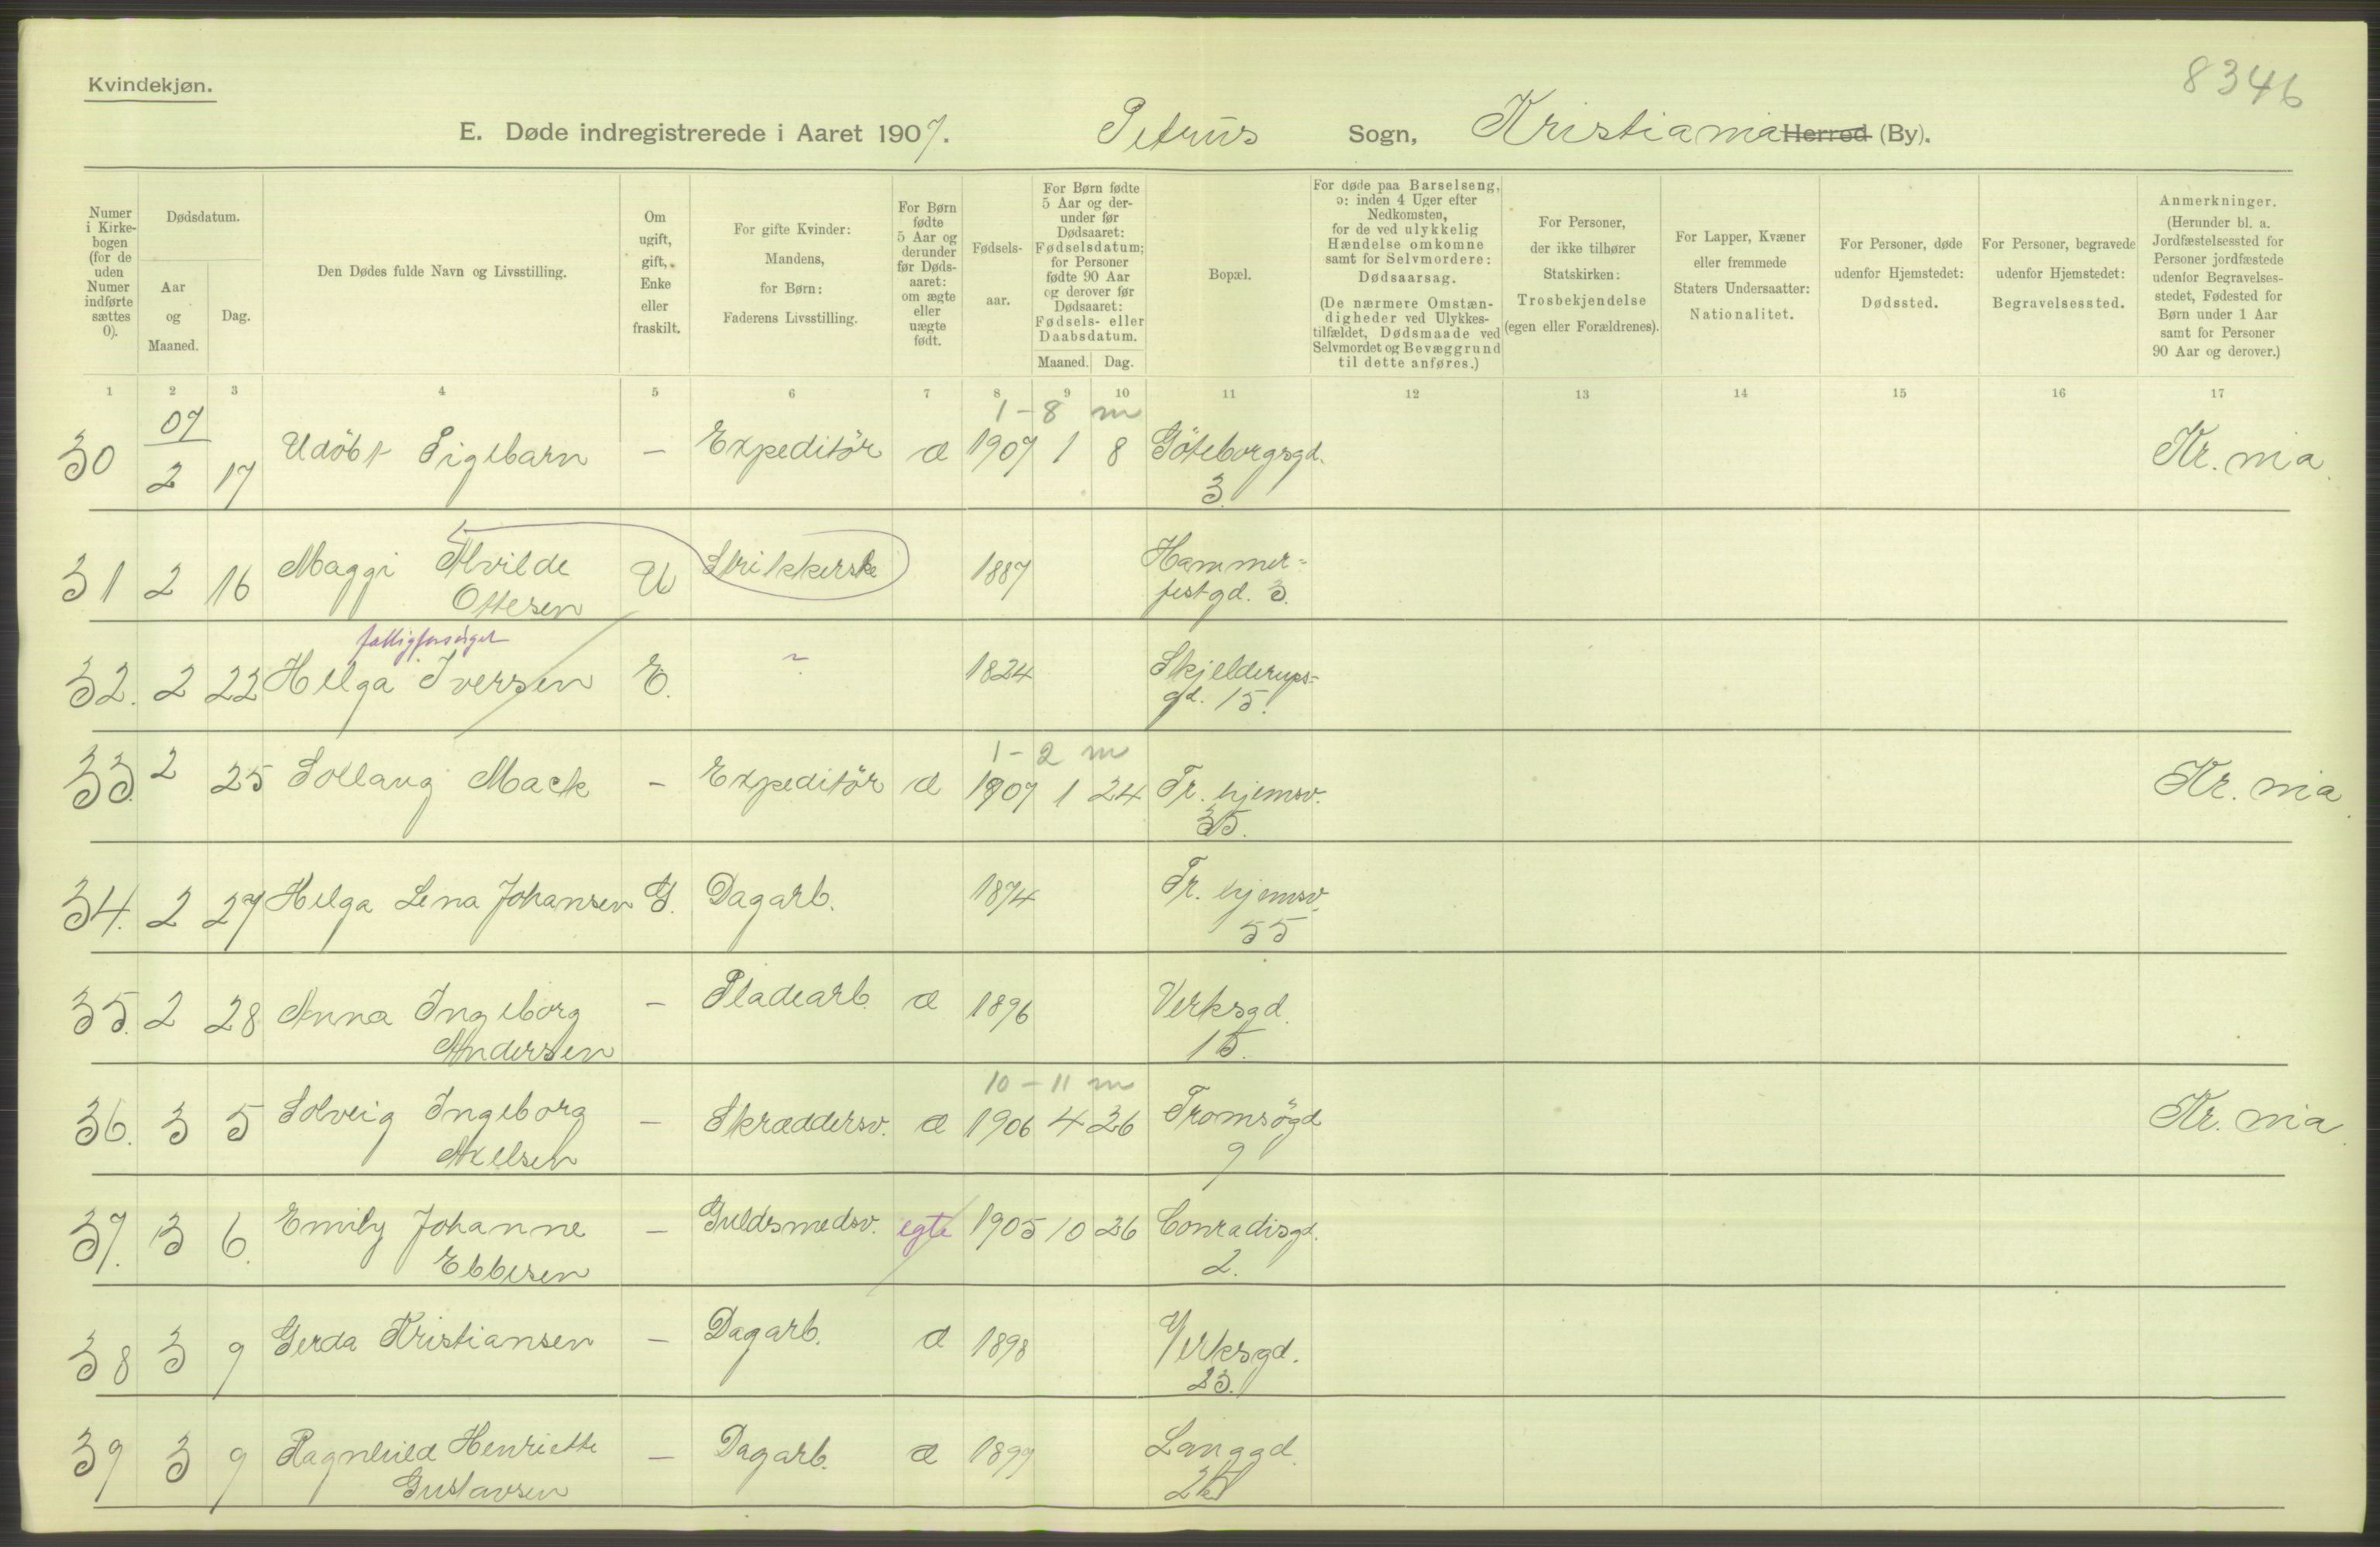 8346
Kvindekjøn.
E. Døde indregistrerede i Aaret 1907. Petrus Sogn, Kristiania Herred (By).
Numer i Kirkebogen (for de uden Numer indførte sættes 0).
Dødsdatum.
Aar og Maaned.
Dag.
Den Dødes fulde Navn og Livsstilling.
Om ugift, gift, Enke eller fraskilt.
For gifte Kvinder: Mandens, for Børn: Faderens Livsstilling.
For Børn fødte 5 Aar og derunder før Dødsaaret: om ægte eller uægte født.
Fødselsaar.
For Børn fødte 5 Aar og derunder før Dødsaaret: Fødselsdatum; for Personer fødte 90 Aar og derover før Dødsaaret: Fødsels- eller Daabsdatum.
Maaned. Dag.
Bopæl.
For døde paa Barselseng, ɔ: inden 4 Uger efter Nedkomsten, for de ved ulykkelig Hændelse omkomne samt for Selvmordere: Dødsaarsag.
(De nærmere Omstændigheder ved Ulykkestilfældet, Dødsmaade ved Selvmordet og Bevæggrund til dette anføres.)
For Personer, der ikke tilhører Statskirken: Trosbekjendelse (egen eller Forældrenes).
For Lapper, Kvæner eller fremmede Staters Undersaatter: Nationalitet.
For Personer, døde udenfor Hjemstedet: Dødssted.
For Personer, begravede udenfor Hjemstedet: Begravelsessted.
Anmerkninger.
(Herunder bl. a. Jordfæstelsessted for Personer jordfæstede udenfor Begravelsesstedet, Fødested for Børn under 1 Aar samt for Personer 90 Aar og derover.)
1 2 3 4 5 6 7 8 9 10 11 12 13 14 15 16 17
07 1-8 m
30 2 17 Udöbt Pigebarn - Expeditör æ 1907 1 8 Göteborgsgd. Kr.nia.
3.
31 2 16 Maggi Alvilde U Strikkerske 1887 Hammer=
Ottesen festgd. 3.
fattigforsörget
32. 2 22 Helga Iversen E. ~ 1824 Skjelderups=
gd. 15.
1-2 m
33. 2 25 Sollaug Mack - Expeditör æ 1907 1 24 Tr.hjemsv. Kr.nia.
35.
34. 2 27 Helga Lena Johansen G. Dagarb. 1874 Tr.hjemsv.
55
35. 2 28 Anna Ingeborg - Pladearb. æ 1896 Verksgd.
Andersen 15.
10-11 m
36. 3 5 Solveig Ingeborg - Skræddersv. æ 1906 4 26 Tromsögd. Kr.nia.
Axelsen 9
37. 3 6. Emily Johanne - Guldsmedsv. egte 1905 10 26 Conradisgd.
Ebbesen 2.
38 3 9 Gerda Kristiansen - Dagarb. æ 1898 Verksgd.
23.
39 3 9 Ragnhild Henriette - Dagarb. æ 1899 Langgd.
Gustavsen